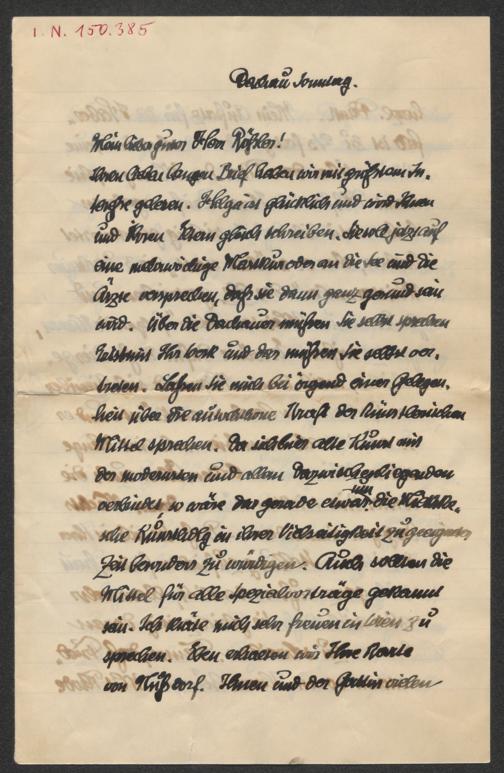 I. N. 150.385
Dachau Sonntag.
Mein lieber guter Herr Röhler!
Ihren lieben langen Brief haben wir mit größtem In-
teresse gelesen. Helga ist glücklich und wird Ihnen
und Ihren Eltern gleich schreiben. Sie soll jetzt auf
eine mehrwöchige Kur oder an die See und die
Ärzte versprechen, daß sie dann ganz gesund sein
wird. Über die Dachauer müssen Sie selbst sprechen
ist Ihr Werk und das müssen Sie selbst ver-
treten. Lassen Sie mich bei irgend einer Gelegen-
heit über die Kraft der künstlerischen
Mittel sprechen. Da sich hier alte Kunst mit
der modernsten und allem dazwischenliegenden
verbindet so wäre das gerade etwas um die
Kunst in ihrer Vielseitigkeit zu geeigneter
Zeit besonders zu würdigen. Auch sollten die
Mittel für alle Spezialvorträge genannt
sein. Ich würde mich sehr freuen in Wien zu
sprechen. Eben erhalten wir Ihre Karte
von Nußdorf. Ihnen und der Gattin vielen